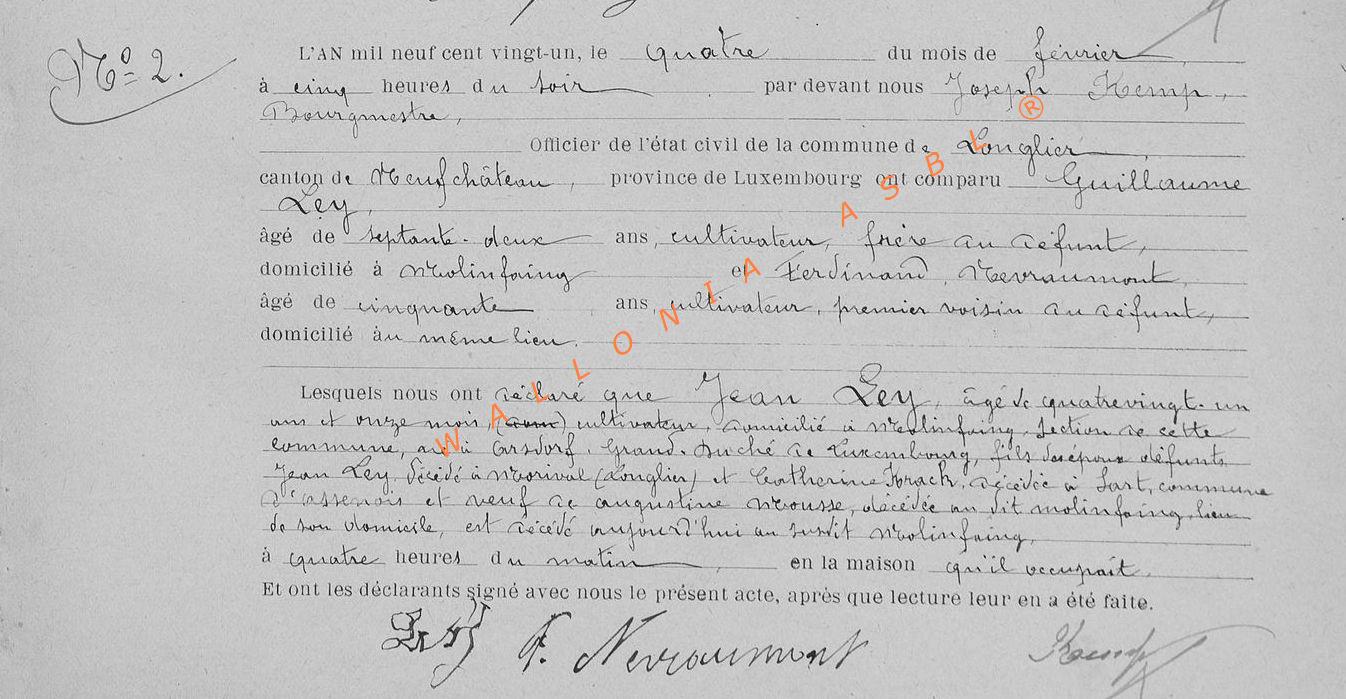 N° 2.
L'AN mil neuf cent vingt-un, le quatre du mois de février
à cinq heures du soir par devant nous Joseph Kemp,
Bourgmestre,
Officier de l'état civil de la commune de Longlier
canton de Neufchâteau, province de Luxembourg ont comparu Guillaume
Ley,
âgé de septante-deux ans, cultivateur, frère au défunt,
domicilié à Molinfaing et Ferdinand Nevraumont,
âgé de cinquante ans, cultivateur, premier voisin au défunt,
domicilié au même lieu.
Lesquels nous ont déclaré que Jean Ley, âgé de quatrevingt-un
ans et onze mois, cultivateur, domicilié à Molinfaing, section de cette
commune, né à Arsdorf, Grand-Duché de Luxembourg, fils des époux défunts
Jean Ley, décédé à Morival (Longlier) et Catherine Horach, décédée à Sart, commune
d'assenois et veuf de augustine Mousse, décédée au dit molinfaing, lieu
de son domicile, est décédé aujourd'hui au susdit Molinfaing,
à quatre heures du matin, en la maison qu'il occupait.
Et ont les déclarants signé avec nous le présent acte, après que lecture leur en a été faite.
Ley F. Nevraumont Kemp
WALLONIA ASBL ®